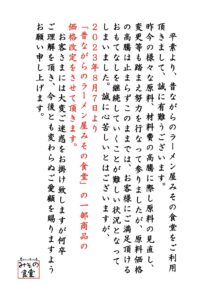 平素より、昔ながらのラーメン屋みその食堂をご利用
頂きまして、誠に有難うございます。
昨今の様々な原料、材料費の高騰に際し原料の見直し、
変更等も踏まえ努力を行なって参りましたが、原料価格
の高騰は止まらずこのままでは、お客様にご満足頂ける
おもてなしを継続していくことが難しい状況となって
しまいました。誠に心苦しいとはございますが、
２０２３年８月７日より
「昔ながらのラーメン屋みその食堂」の一部商品の
価格改定をさせて頂きます。
お客さまには大変ご迷惑をお掛け致しますが何卒
ご理解を頂き、今後とも変わらぬご愛顧を賜りますよう
お願い申し上げます。
みその
食堂